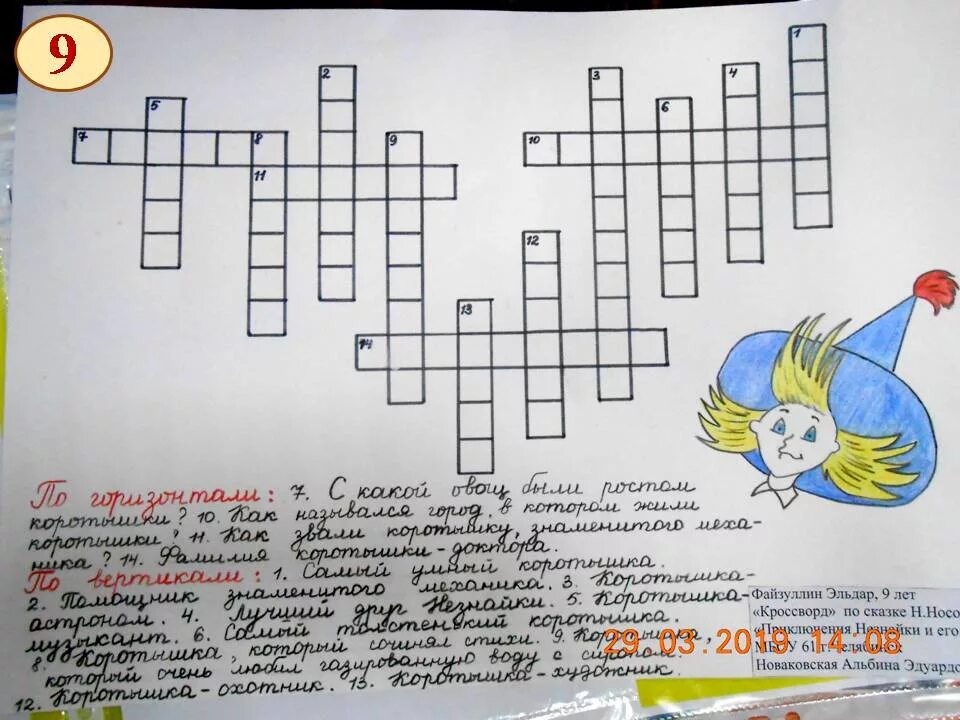 9
1
2
3
4
5
6
7
8
9
10
11
12
13
14
По горизонтали: 7. С какой овощ были ростом
коротышки? 10. Как назывался город, в котором жили
коротышки? 11. Как звали коротышку, знаменитого меха-
ника? 14. Фамилия коротышки-доктора.
По вертикали: 1. Самый умный коротышка.
2. Помощник знаменитого механика. 3. Коротышка-
астроном. 4. Лучший друг Незнайки. 5. Коротышка-
музыкант. 6. Самый толстенский коротышка.
8. Коротышка, который сочинял стихи. 9. Коротышка,
который очень любил газированную воду с сиропом.
12. Коротышка-охотник. 13. Коротышка-художник.
Файзуллин Эльдар, 9 лет
«Кроссворд» по сказке Н.Носо
«Приключения Незнайки и его
МБОУ 61 г.Челябинск
Новаковская Альбина Эдуардо
29.03.2019 14:08